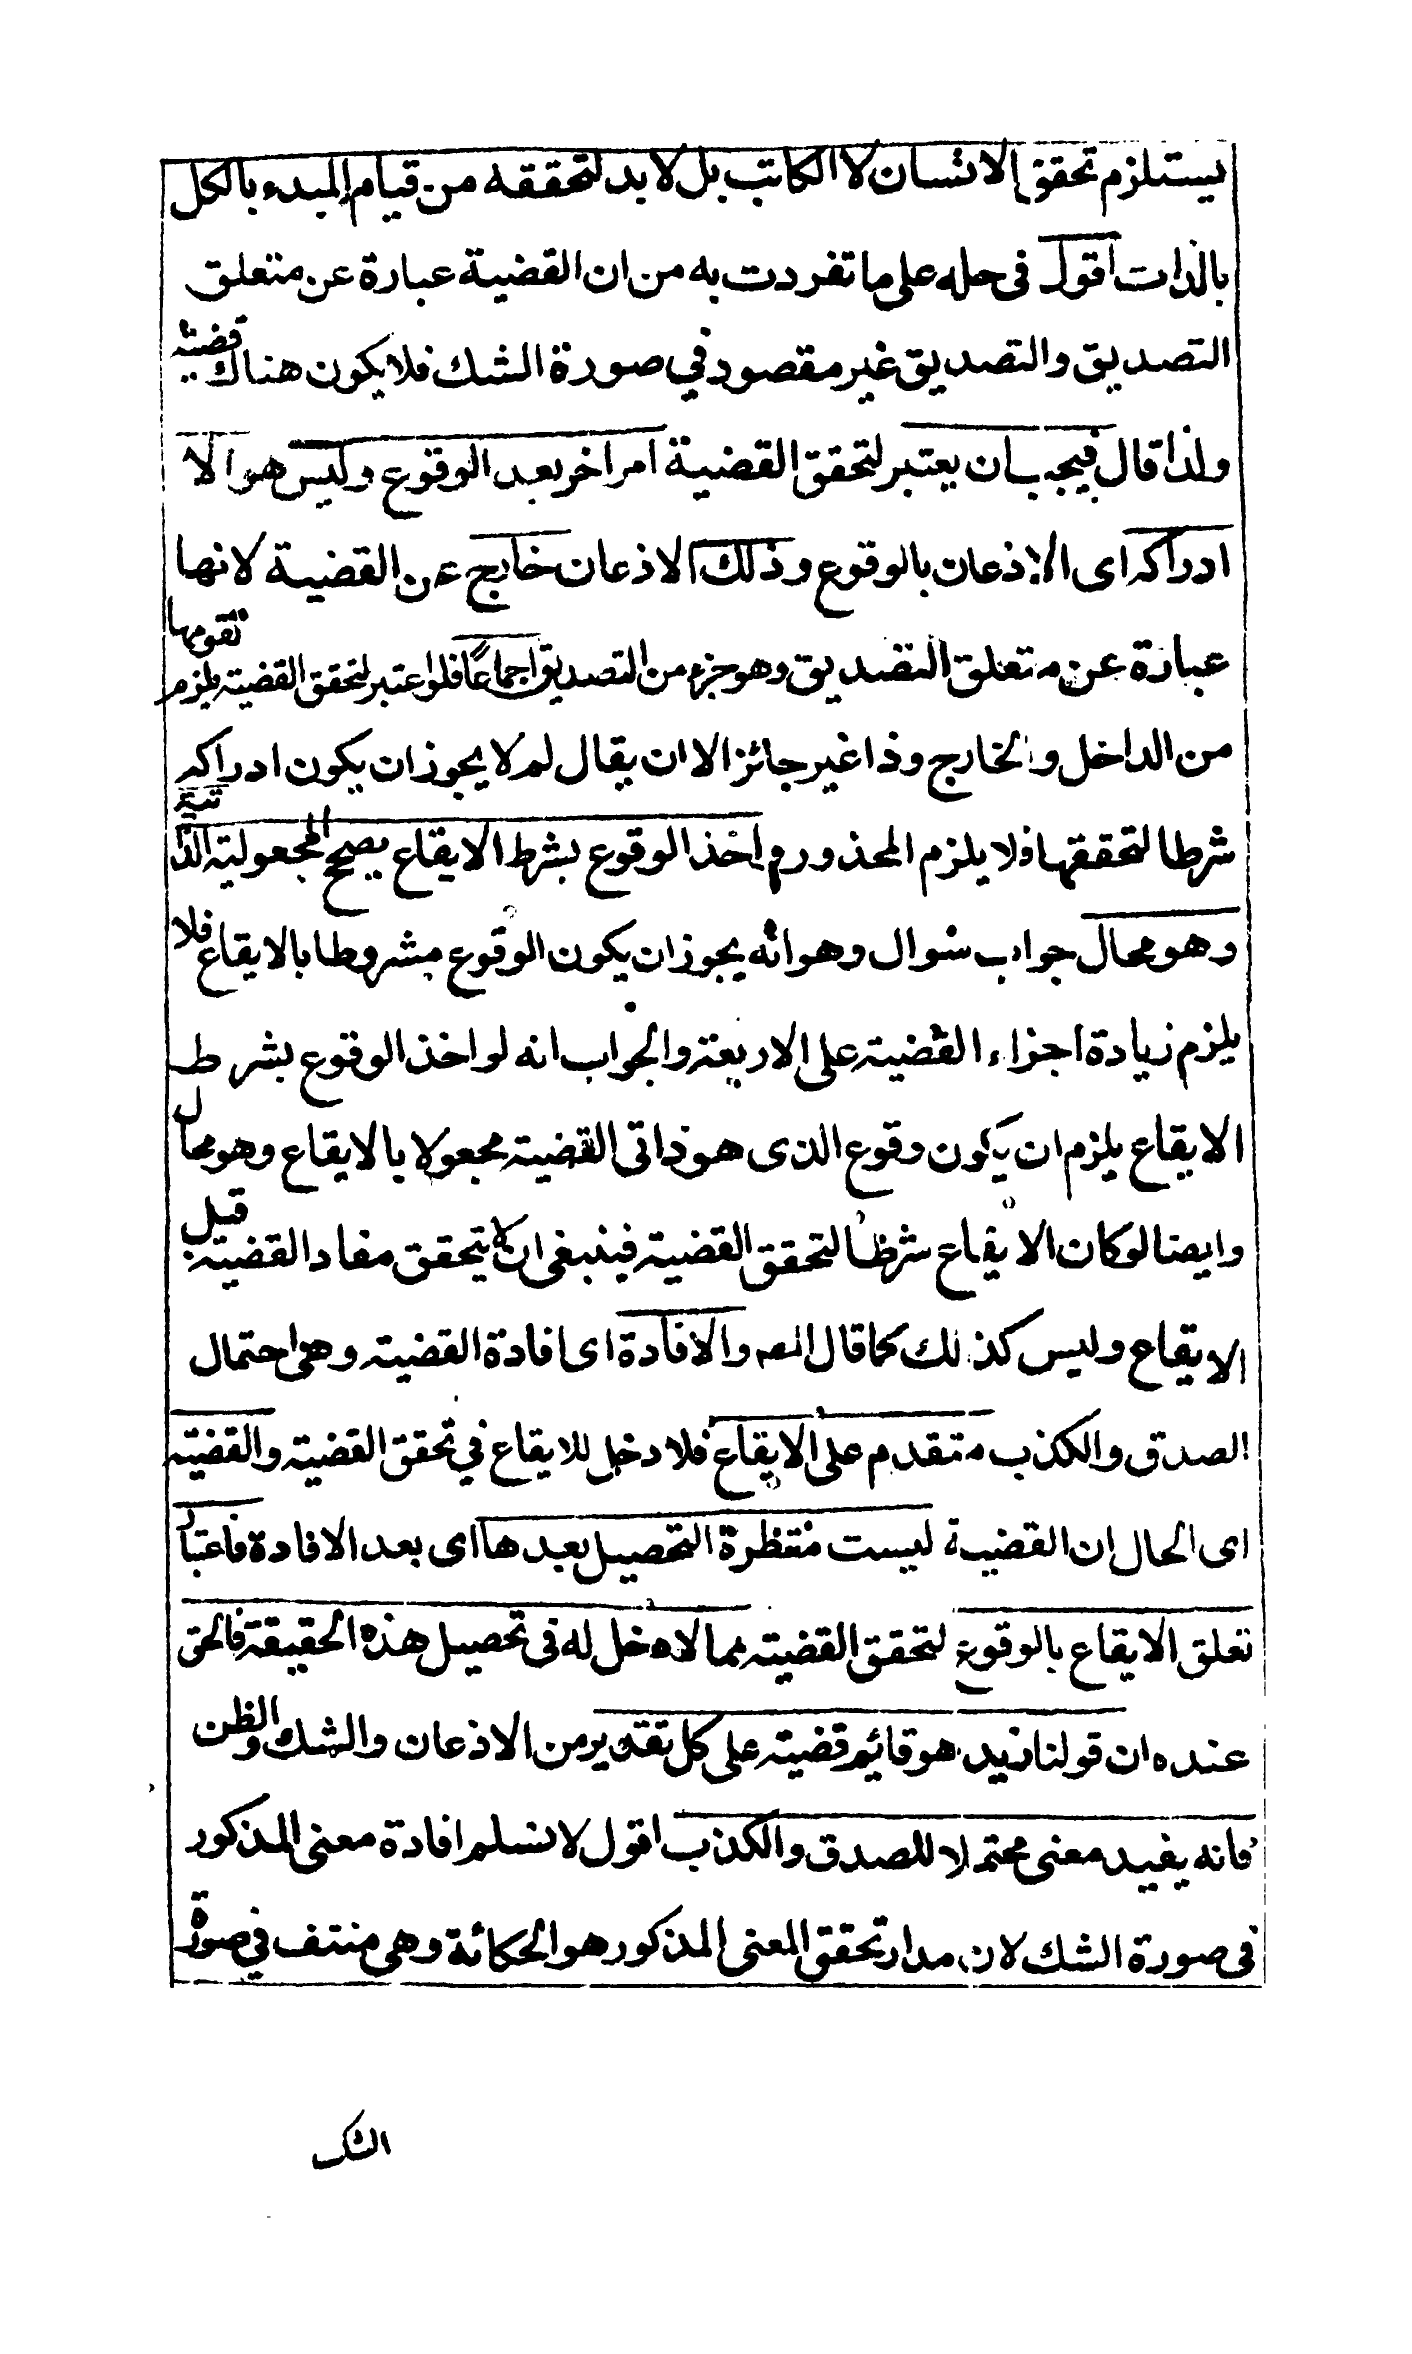 يستلزم تحقق الانسان لا الكاتب بل لا بد لتحققه من قيام المبدء بالكل
بالذات اقول فى حله على ما تفردت به من ان القضية عبارة عن متعلق
التصديق والتصديق غير مقصود في صورة الشك فلا يكون هناك قضية
ولذا قال فيجب ان يعتبر لتحقق القضية امر اخر بعد الوقوع وليس هو الا
ادراكه اى الاذعان بالوقوع وذلك الاذعان خارج عن القضية لانها
عبارة عن متعلق التصديق وهو جزء من التصديق اجماعًا فلو اعتبر لتحقق القضية يلزم تقومها
من الداخل والخارج وذا غير جائز الا ان يقال لم لا يجوز ان يكون ادراكه
شرطا لتحققها فلا يلزم المحذور واخذ الوقوع بشرط الايقاع يصحح المجعولية الذاتية
وهو محال جواب سوال وهو انه يجوز ان يكون الوقوع مشروطا بالايقاع فلا
يلزم زيادة اجزاء القضية على الاربعة والجواب انه لو اخذ الوقوع بشرط
الايقاع يلزم ان يكون وقوع الذى هو ذاتى القضية مجعولا بالايقاع وهو محال
وايضا لو كان الايقاع شرطا لتحقق القضية فينبغى ان لا يتحقق مفاد القضية قبل
الايقاع وليس كذلك كما قال المصه والافادة اى افادة القضية وهى احتمال
الصدق والكذب متقدم على الايقاع فلا دخل للايقاع في تحقق القضية والقضية
اى الحال ان القضية ليست منتظرة التحصيل بعدها اى بعد الافادة فاعتبار
تعلق الايقاع بالوقوع لتحقق القضية مما لا دخل له فى تحصيل هذه الحقيقة فالحق
عنده ان قولنا زيد هو قائم قضية على كل تقدير من الاذعان والشك والظن
فانه يفيد معنى محتملا للصدق والكذب اقول لا نسلم افادة معنى المذكور
فى صورة الشك لان مدار تحقق المعنى المذكور هو الحكائة وهى منتف في صورة
الشك